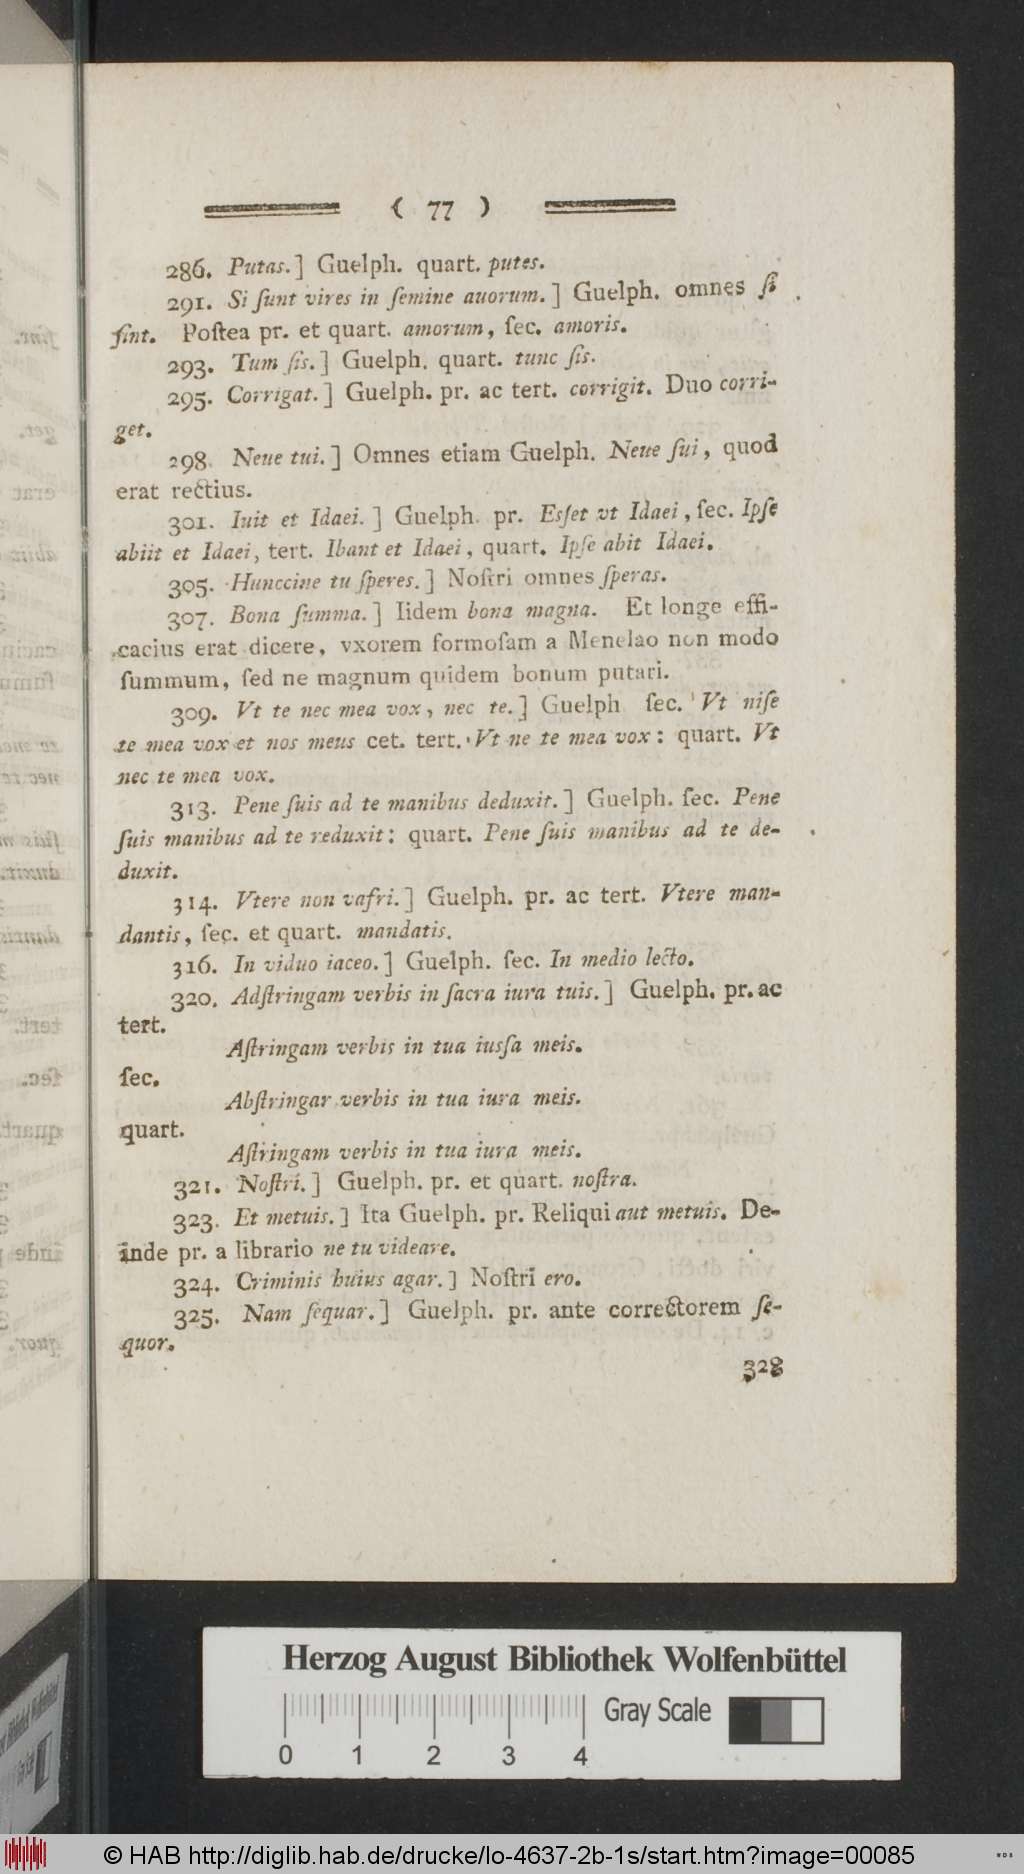 ( 77 )
286. Putas.] Guelph. quart. putes.
291. Si ſunt vires in ſemine auorum.] Guelph. omnes ſi
ſint. Poſtea pr. et quart. amorum, ſec. amoris.
293. Tum ſis.] Guelph. quart. tunc ſis.
295. Corrigat.] Guelph. pr. ac tert. corrigit. Duo corri-
get.
298. Neue tui.] Omnes etiam Guelph. Neue ſui, quod
erat rectius.
301. Iuit et Idaei.] Guelph. pr. Esſet vt Idaei, ſec. Ipſe
abiit et Idaei, tert. Ibant et Idaei, quart. Ipſe abit Idaei.
305. Hunccine tu ſperes.] Noſtri omnes ſperas.
307. Bona ſumma.] Iidem bona magna. Et longe effi-
cacius erat dicere, vxorem formoſam a Menelao non modo
ſummum, ſed ne magnum quidem bonum putari.
309. Vt te nec mea vox, nec te.] Guelph ſec. Vt niſe
te mea vox et nos meus cet. tert. Vt ne te mea vox: quart. Vt
nec te mea vox.
313. Pene ſuis ad te manibus deduxit.] Guelph. ſec. Pene
ſuis manibus ad te reduxit: quart. Pene ſuis manibus ad te de-
duxit.
314. Vtere non vafri.] Guelph. pr. ac tert. Vtere man-
dantis, ſec. et quart. mandatis.
316. In viduo iaceo.] Guelph. ſec. In medio lecto.
320. Adſtringam verbis in ſacra iura tuis.] Guelph. pr. ac
tert.
Aſtringam verbis in tua iusſa meis.
ſec.
Abſtringar verbis in tua iura meis.
quart.
Aſtringam verbis in tua iura meis.
321. Noſtri.] Guelph. pr. et quart. noſtra.
323. Et metuis.] Ita Guelph. pr. Reliqui aut metuis. De-
inde pr. a librario ne tu videare.
324. Criminis huius agar.] Noſtri ero.
325. Nam ſequar.] Guelph. pr. ante correctorem ſe-
quor.
328
Herzog August Bibliothek Wolfenbüttel
Gray Scale
0 1 2 3 4
© HAB http://diglib.hab.de/drucke/lo-4637-2b-1s/start.htm?image=00085